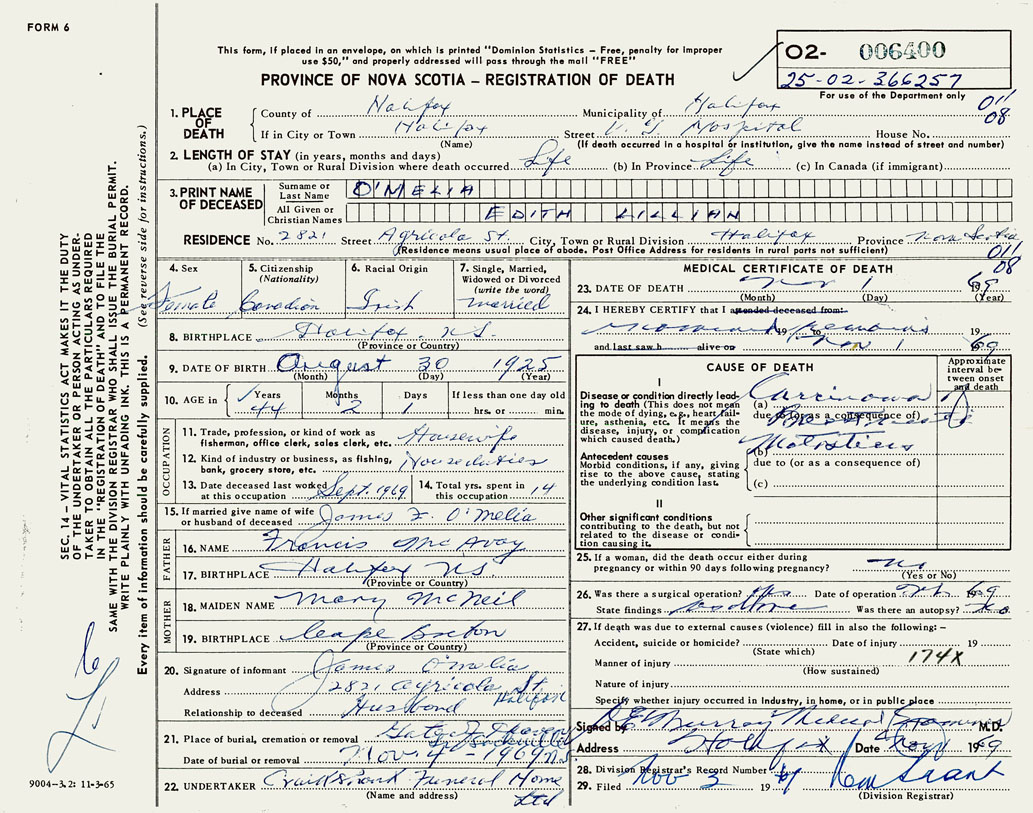 FORM 6
This form, if placed in an envelope, on which is printed "Dominion Statistics – Free, penalty for improper
use $50," and properly addressed will pass through the mail "FREE"
PROVINCE OF NOVA SCOTIA – REGISTRATION OF DEATH
O2- 006400
25-02-366257
For use of the Department only
011
08
1. PLACE OF DEATH
County of Halifax Municipality of Halifax
If in City or Town Halifax Street V. G. Hospital House No.
(Name) (If death occurred in a hospital or institution, give the name instead of street and number)
2. LENGTH OF STAY (in years, months and days)
(a) In City, Town or Rural Division where death occurred Life (b) In Province Life (c) In Canada (if immigrant)
3. PRINT NAME OF DECEASED
Surname or Last Name O'MELIA
All Given or Christian Names EDITH LILLIAN
RESIDENCE No. 2821 Street Agricola St. City, Town or Rural Division Halifax Province Nova Scotia
(Residence means usual place of abode. Post Office Address for residents in rural parts not sufficient)
011
08
4. Sex Female
5. Citizenship (Nationality) Canadian
6. Racial Origin Irish
7. Single, Married, Widowed or Divorced (write the word) married
8. BIRTHPLACE Halifax N.S.
(Province or Country)
9. DATE OF BIRTH August 30 1925
(Month) (Day) (Year)
10. AGE in Years 44 Months 2 Days 1 If less than one day old hrs. or min.
OCCUPATION
11. Trade, profession, or kind of work as fisherman, office clerk, sales clerk, etc. Housewife
12. Kind of industry or business, as fishing, bank, grocery store, etc. House duties
13. Date deceased last worked at this occupation Sept. 1969
14. Total yrs. spent in this occupation 14
15. If married give name of wife or husband of deceased James F. O'Melia
FATHER
16. NAME Francis McAvoy
17. BIRTHPLACE Halifax N.S.
(Province or Country)
MOTHER
18. MAIDEN NAME Mary McNeil
19. BIRTHPLACE Cape Breton
(Province or Country)
20. Signature of informant James O'Melia
Address 2821 Agricola St. Halifax
Relationship to deceased Husband
21. Place of burial, cremation or removal Gate of Heaven
Date of burial or removal Nov. 4 - 1969
22. UNDERTAKER Funeral Home Ltd
(Name and address)
MEDICAL CERTIFICATE OF DEATH
23. DATE OF DEATH Nov 1 1969
(Month) (Day) (Year)
24. I HEREBY CERTIFY that I attended deceased from:
remains 19 to 19
and last saw h alive on Nov 1 69
CAUSE OF DEATH
Approximate interval between onset and death
I
Disease or condition directly leading to death (This does not mean the mode of dying, e.g., heart failure, asthenia, etc. It means the disease, injury, or complication which caused death.)
(a) Carcinoma
due to (or as a consequence of)
Antecedent causes
Morbid conditions, if any, giving rise to the above cause, stating the underlying condition last.
(b)
due to (or as a consequence of)
(c)
II
Other significant conditions contributing to the death, but not related to the disease or condition causing it.
25. If a woman, did the death occur either during pregnancy or within 90 days following pregnancy? no
(Yes or No)
26. Was there a surgical operation? Date of operation 69
State findings Was there an autopsy? No
27. If death was due to external causes (violence) fill in also the following: –
Accident, suicide or homicide? Date of injury 19
(State which)
Manner of injury 174X
(How sustained)
Nature of injury
Specify whether injury occurred in Industry, in home, or in public place
Signed by Murray Medical Examiner M.D.
Address Halifax Date Nov 1 1969
28. Division Registrar's Record Number
29. Filed Nov 3 19 69 Grant
(Division Registrar)
SEC. 14 – VITAL STATISTICS ACT MAKES IT THE DUTY
OF THE UNDERTAKER OR PERSON ACTING AS UNDER-
TAKER TO OBTAIN ALL THE PARTICULARS REQUIRED
IN THE "REGISTRATION OF DEATH" AND FILE THE
SAME WITH THE DIVISION REGISTRAR WHO SHALL ISSUE THE BURIAL PERMIT.
WRITE PLAINLY WITH UNFADING INK. THIS IS A PERMANENT RECORD.
Every item of information should be carefully supplied. (See reverse side for instructions.)
9004–3.2: 11-3-65